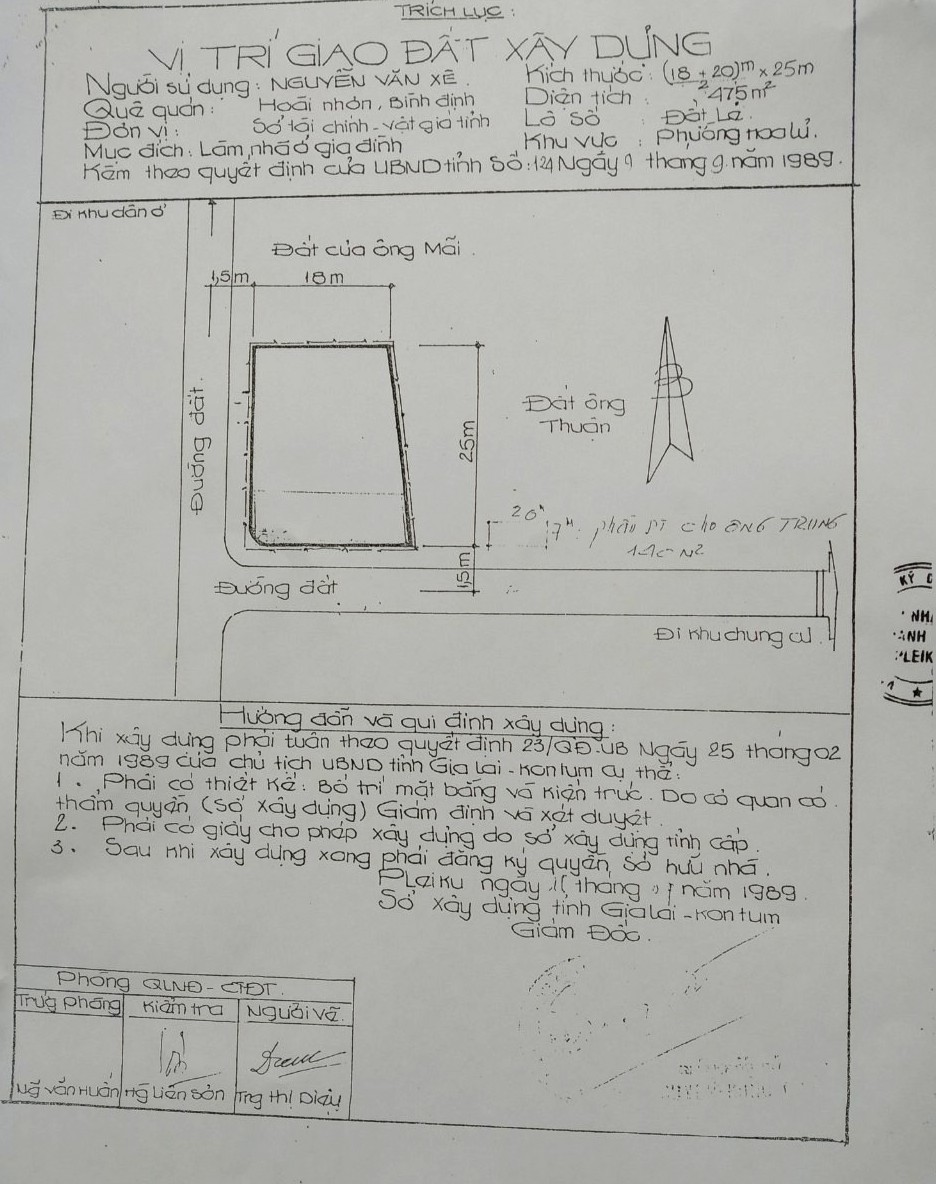 TRÍCH LỤC :
VỊ TRÍ GIAO ĐẤT XÂY DỰNG
Người sử dụng : NGUYỄN VĂN XÊ .
Quê quán : Hoài nhơn , Bình định
Đơn vị : Sở tài chính - vật giá tỉnh
Mục đích : Làm nhà ở gia đình
Kích thước : (18 + 20)m x 25m
2
Diện tích : 475m²
Lô số : Đất Lẻ .
Khu vực : Phường Hoa lư .
Kèm theo quyết định của UBND tỉnh Số : 124 Ngày 9 tháng 9 năm 1989 .
Đi khu dân ở
Đất của ông Mãi .
1,5m
18m
Đường đất .
25m
Đất ông
Thuận
B
20m
7m phần DT cho ÔNG TRUNG
140 M2
1,5m
Đường đất
Đi khu chung cư .
KÝ
NH
ANH
PLEIK
Hướng dẫn và qui định xây dựng :
Khi xây dựng phải tuân theo quyết định 23/QĐ.UB Ngày 25 tháng 02
năm 1989 của chủ tịch UBND tỉnh Gia lai - Kon tum cụ thể :
1 . Phải có thiết kế : Bố trí mặt bằng và kiến trúc . Do cơ quan có
thẩm quyền (Sở xây dựng) Giám định và xét duyệt .
2. Phải có giấy cho phép xây dựng do sở xây dựng tỉnh cấp .
3. Sau khi xây dựng xong phải đăng ký quyền sở hữu nhà .
Pleiku ngày tháng năm 1989 .
Sở xây dựng tỉnh Gia lai - Kon tum
Giám Đốc .
Phòng QLNĐ - CTĐT .
Trưg phòng Kiểm tra Người vẽ .
Ng̃ văn Huấn Hg̃ Liên Sơn Trng thị Diệu